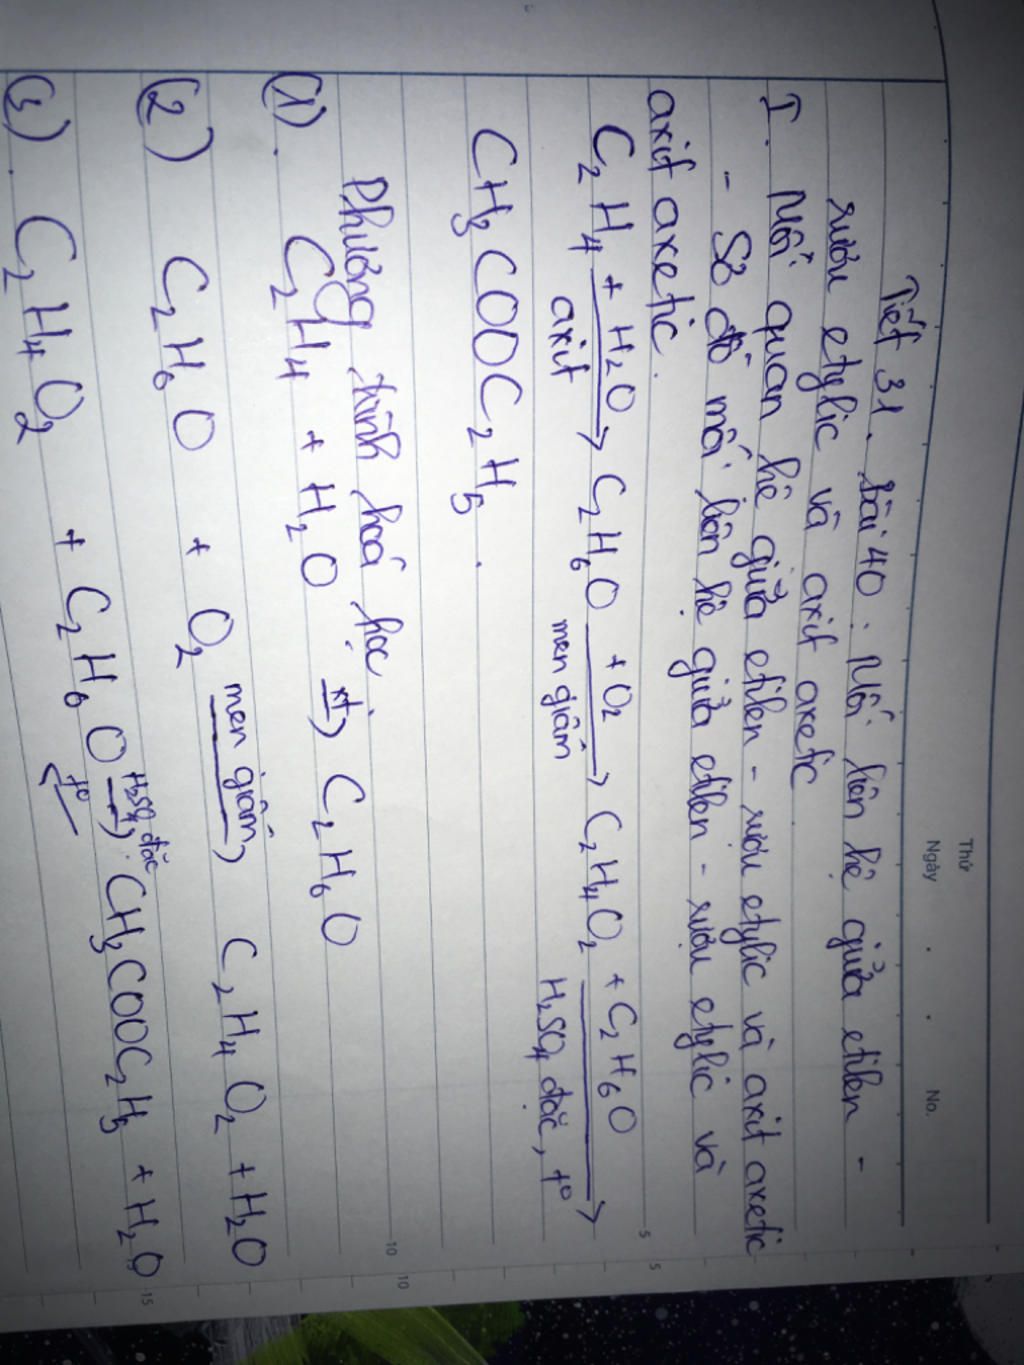 Thứ
Ngày . . No.
Tiết 31. Bài 40: Mối liên hệ giữa etilen -
rượu etylic và axit axetic
I. Mối quan hệ giữa etilen - rượu etylic và axit axetic
- Sơ đồ mối liên hệ giữa etilen - rượu etylic và
axit axetic.
C2H4 + H2O axit → C2H6O + O2 men giấm → C2H4O2 + C2H6O H2SO4 đặc, t° →
CH3COOC2H5.
Phương trình hoá học
(1). C2H4 + H2O xt → C2H6O
(2) C2H6O + O2 men giấm → C2H4O2 + H2O
(3). C2H4O2 + C2H6O H2SO4 đặc → t° ← CH3COOC2H5 + H2O
5
5
10
10
15